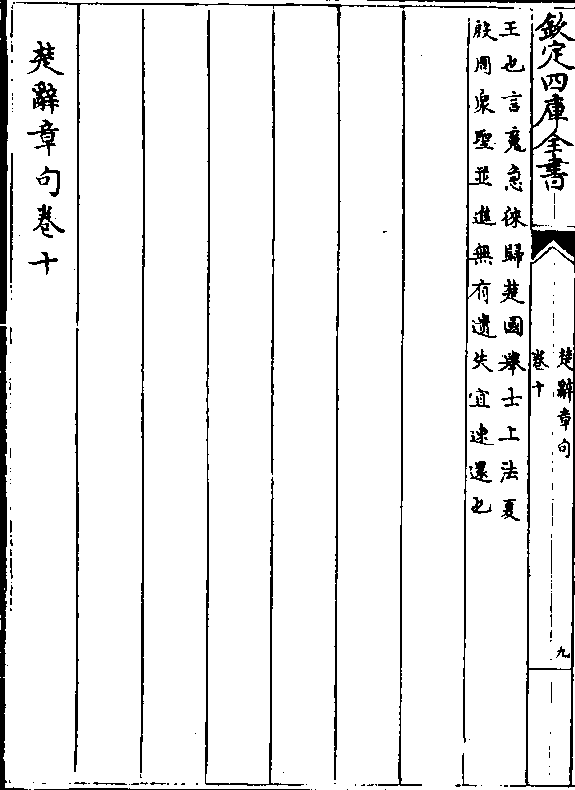 欽定四庫全書
楚辭章句
卷十
九
王也言魂急徠歸楚國舉士上法夏
殷周衆聖並進無有遺失宜速還也
楚辭章句卷十